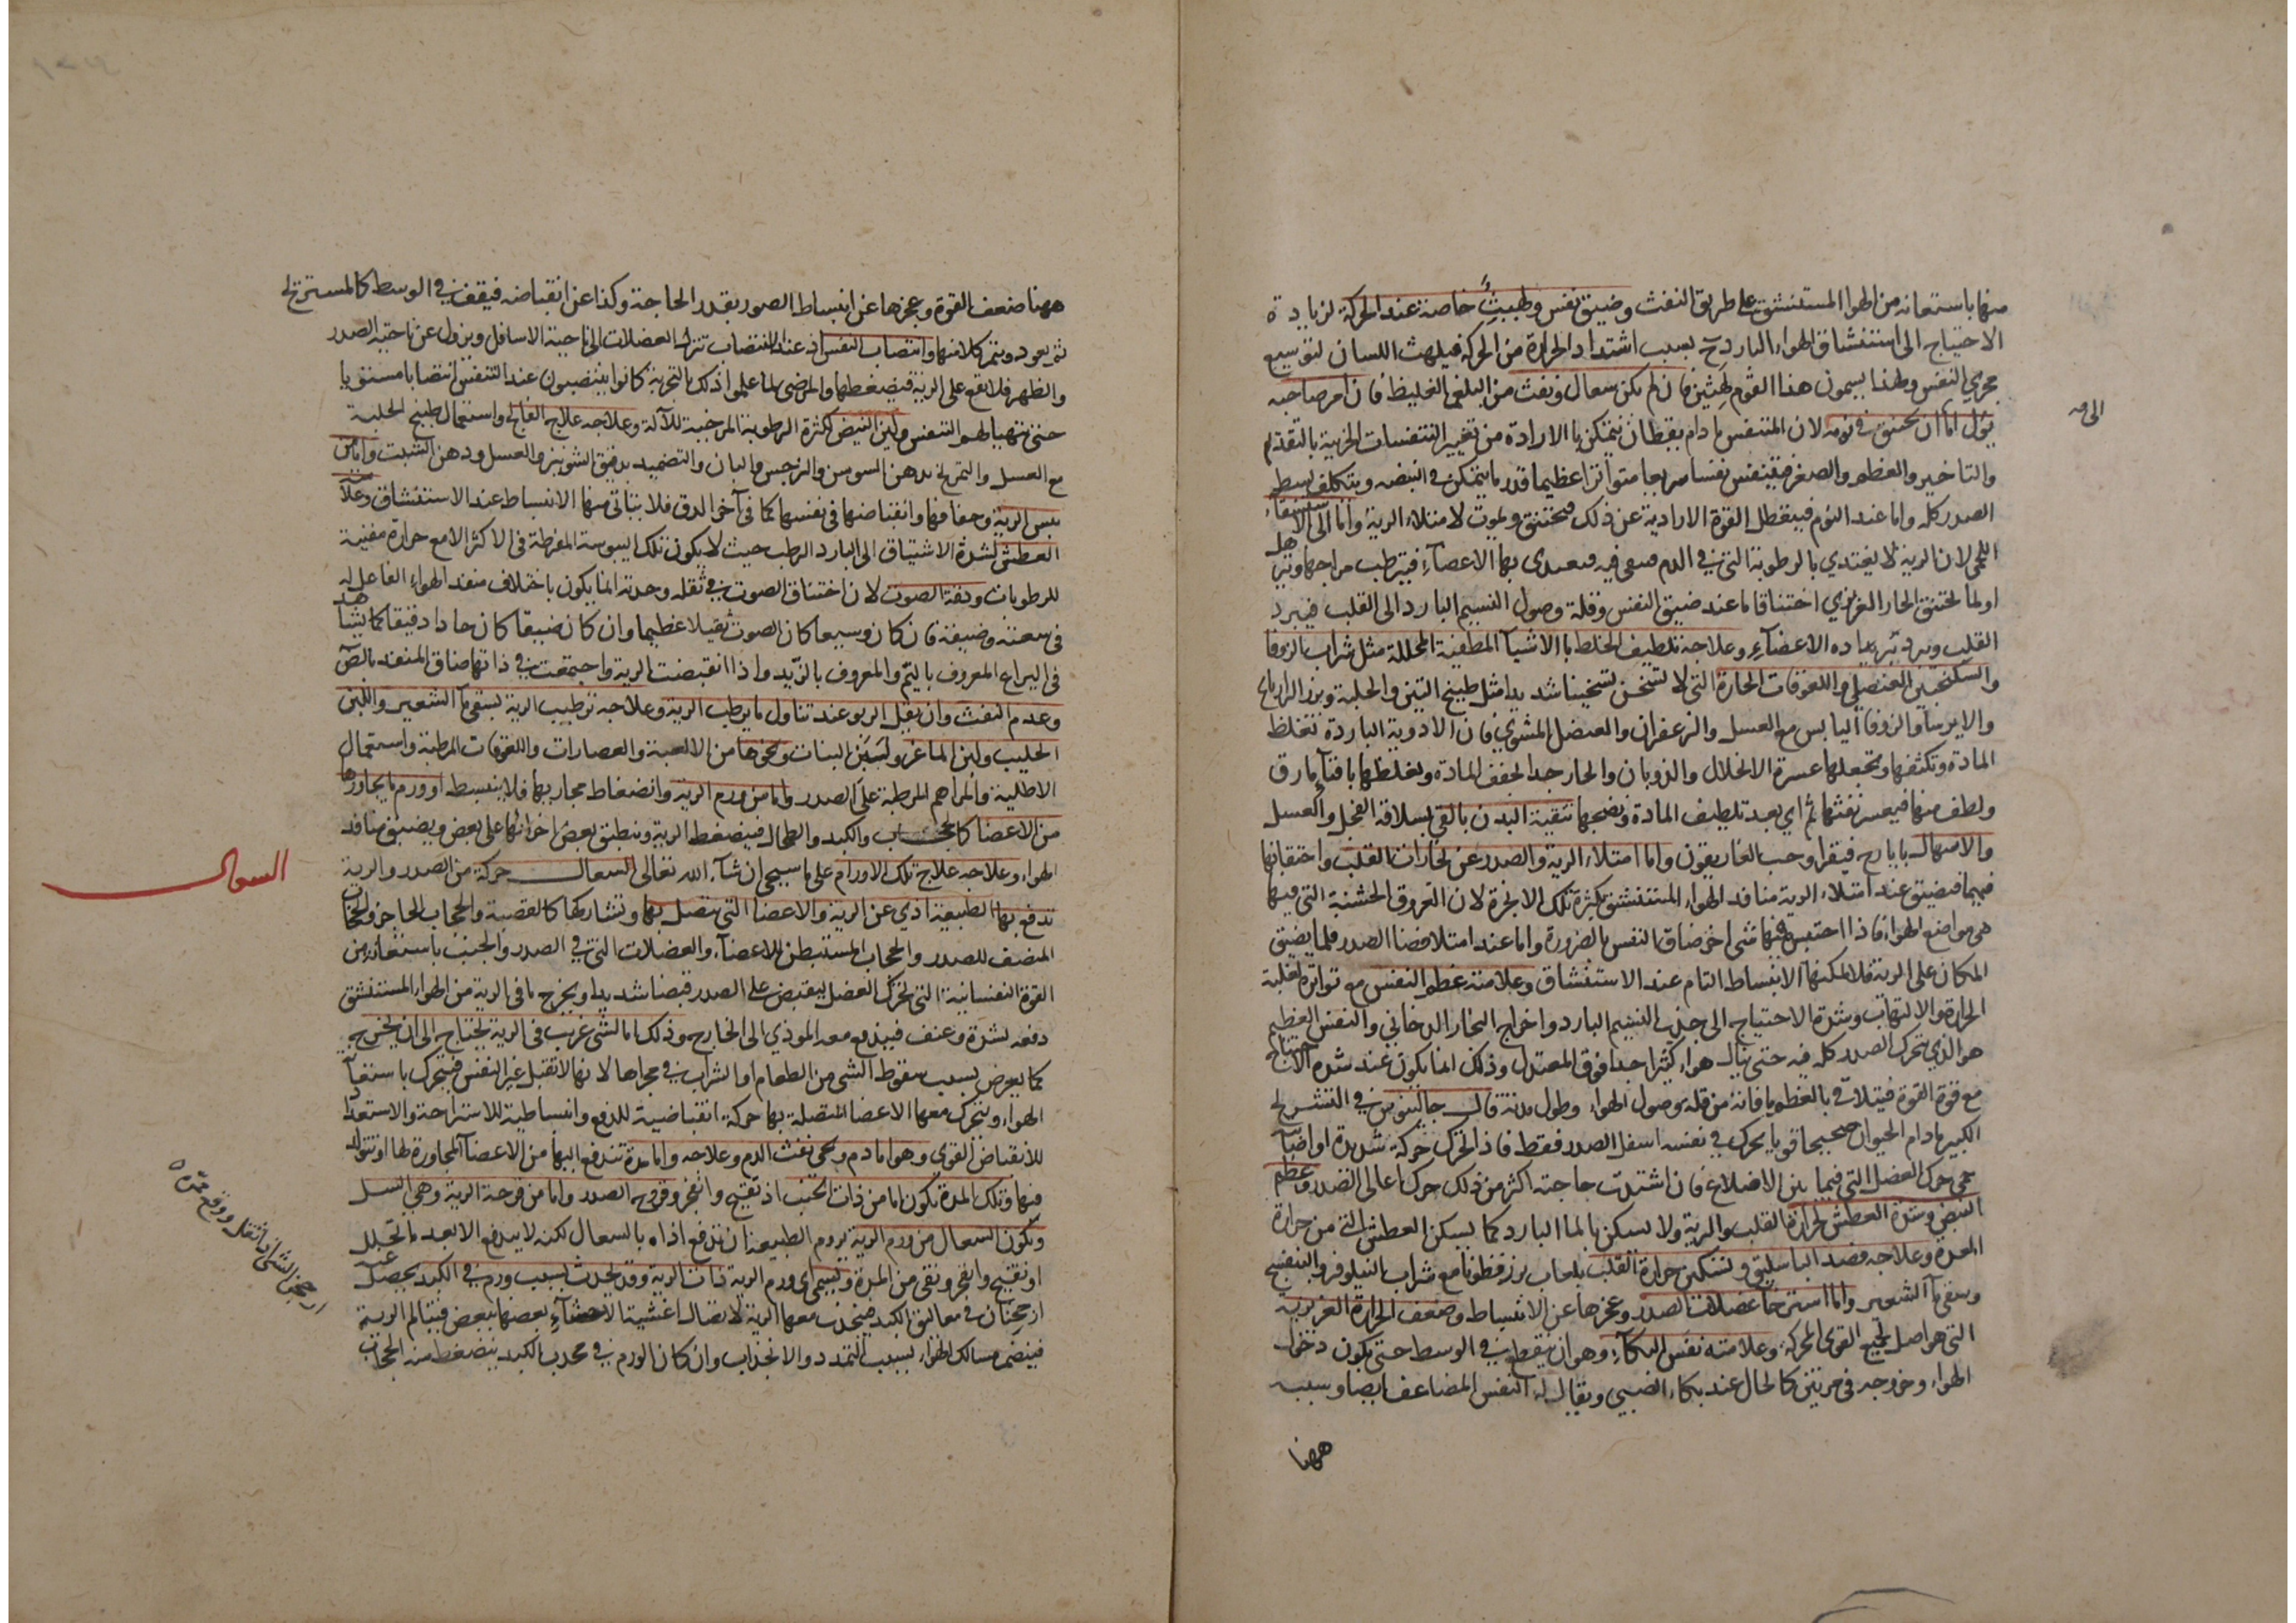 منها باستعانة من الهوا المستنشق على طريق النفث وضيق نفس ولهيبث خاصة عند الحركة لزيادة
الاحتياج الى استنشاق الهواء البارد ح بسبب اشتداد الحرارة من الحركة فيلهث اللسان لتوسيع
مجرى النفس ولهذا يسمون هذا القوم لهثين فان لم يكن سعال ونفث من البلغم الغليظ فان امر صاحبه
يؤل اما ان يختنق في نومه لان المتنفس ما دام يقظان يتمكن بالارادة من تغيير التنفسات الجزئية بالتقديم
والتاخير والعظم والصغر فيتنفس نفسا سريعا متواترا عظيما قدر ما يتمكن في انبضه ويتكلف بسط
الصدر كله واما عند النوم فيتعطل القوة الارادية عن ذلك فيختنق ويموت لامتلاء الرية واما الى الاستسقاء
اللحمي لان الرية لا يغتدي بالرطوبة التي في الدم فيبقى فيه بها الاعضاء فيترطب مزاجها ويترهل
او لما يختنق الحار الغريزي اختناقا ما عند ضيق النفس وقلة وصول النسيم البارد الى القلب فيبرد
القلب ويبرد ببرده الاعضاء وعلاجه تلطيف الخلط بالاشيا المطفية المحللة مثل شراب الزوفا
والسكنجبين العنصلي واللعوقات الحارة التي لا تسخن تسخينا شديدا مثل طبيخ التين والحلبة وبزر الرازيانج
والايرسا والزوفا اليابس مع العسل والزعفران والعنصل المشوي فان الادوية الباردة تغلظ
المادة وتكثفها وتجعلها عسرة الانحلال والذوبان والحار جدا يجفف المادة ويغلظها بافناء ما رق
ولطف منها فيعسر نفثها ثم اي بعد تلطيف المادة ونضجها تنقية البدن بالقي بسلاقة الفجل والعسل
والاسهال بايارج فيقرا وحب الغاريقون واما امتلاء الرية والصدر عن بخارات القلب واحتقانها
فيهما فيضيق عند امتلاء الرية منافذ الهواء المستنشق بكثرة تلك الابخرة لان العروق الخشنة التي فيها
هي مواضع الهواء فاذا احتبس فيها شي اخر ضاق النفس بالضرورة واما عند امتلا فضا الصدر فلما يضيق
المكان على الرية فلا يمكنها الانبساط التام عند الاستنشاق وعلامته عظم النفس مع تواتره لغلبة
الحرارة والالتهاب وشدة الاحتياج الى جذب النسيم البارد واخراج البخار الدخاني والنفس العظيم
هو الذي يتحرك الصدر كله فيه حتى ينال هواء كثيرا جدا فوق المعتدل وذلك انما يكون عند شدة الاحتياج
مع قوة القوة فيتلافى بالعظم ما فاته من قلة وصول الهواء وطول مدته قال جالينوس في التشريح
الكبير ما دام الحيوان صحيحا قويا يحرك في نفسه اسفل الصدر فقط فاذا تحرك حركة شديدة او اصابه
حمى حرك العضل التي فيما بين الاضلاع فان اشتدت حاجته اكثر من ذلك حرك اعالي الصدر وعظم
النبض وشدة العطش لحرارة القلب والرية ولا يسكن بالما البارد كما يسكن العطش التي من حرارة
المعدة وعلاجه فصد الباسليق وتسكين حرارة القلب بلعاب بزر قطونا مع شراب النيلوفر والبنفسج
وسقي ماء الشعير واما استرخا عضلات الصدر وعجزها عن الانبساط وضعف الحرارة الغريزية
التي هو اصل لجميع القوى المحركة وعلامته نفس البكاء وهو ان ينقطع في الوسط حتى يكون دخول
الهواء وخروجه في مرتين كالحال عند بكاء الصبي ويقال له النفس المضاعف ايضا وسببه
ههنا
ههنا ضعف القوة وعجزها عن انبساط الصدر بقدر الحاجة وكذا عن انقباضه فيقف في الوسط كالمستريح
ثم يعود ويتم كلا منهما وانتصاب النفس اذ عند الانتصاب تنزل العضلات الى ناحية الاسافل ويزول عن ناحية الصدر
والظهر فلا يقع على الرية فيضغطها والمرضى لما علموا ذلك بالتجربة كانوا ينتصبون عند التنفس انتصابا مستويا
حتى يتهيا لهم التنفس ولين النبض لكثرة الرطوبة المرخية للآلة وعلاجه علاج الفالج واستعمال طبيخ الحلبة
مع العسل والتمريخ بدهن السوسن والنرجس والبان والتضميد بدقيق الشونيز والعسل ودهن الشبت واما من
يبس الرية وجفافها وانقباضها في نفسها كما في آخر الدق فلا يتاتى منها الانبساط عند الاستنشاق وعلامته
العطش لشدة الاشتياق الى البارد الرطب حيث لا يكون تلك اليبوسة المفرطة في الاكثر الا مع حرارة مفنية
للرطوبات ودقة الصوت لان اختناق الصوت في ثقله وحدته انما يكون باختلاف منفذ الهواء الفاعل له
في سعته وضيقه فان كان وسيعا كان الصوت ثقيلا عظيما وان كان ضيقا كان حادا دقيقا كما يشاهد
في اليراع المعروف بالبم والمعروف بالزير واذا انقبضت الرية واجتمعت في ذاتها ضاق المنفذ بالضرورة
وعدم النفث وان يقل الربو عند تناول ما يرطب الرية وعلاجه ترطيب الرية بسقي ماء الشعير واللبن
الحليب ولبن الماعز ولبن البنات ونحوها من الالعبة والعصارات واللعوقات المرطبة واستعمال
الاطلية والمراهم المرطبة على الصدر واما من ورم الرية وانضغاط مجاريها فلا ينبسط او ورم ما يجاورها
من الاعضا كالحجاب والكبد والطحال فينضغط الرية وينطبق بعض اجزائها على بعض ويضيق منافذ
الهواء وعلاجه علاج تلك الاورام على ما سيجي ان شاء الله تعالى السعال حركة من الصدر والرية
تدفع بها الطبيعة اذى عن الرية والاعضا التي تتصل بها وتشاركها كالقصبة والحجاب الحاجز والحجاب
المنصف للصدر والحجاب المستبطن للاعضاء والعضلات التي في الصدر والجنب باستعانة من
القوة النفسانية التي تحرك العضل ليقبض على الصدر قبضا شديدا ويخرج ما في الرية من الهواء المستنشق
دفعة بشدة وعنف فيندفع معه الموذي الى الخارج وذلك اما لشي غريب في الرية تحتاج الى ان تخرجه
كما يعرض بسبب سقوط الشي من الطعام او الشراب في مجراها لانها لا تقبل غير النفس فيتحرك باستنقاء
الهواء ويتحرك معها الاعضا المتصلة بها حركة انقباضية للدفع وانبساطية للاستراحة والاستعداد
للانقباض القوي وهو اما دم ويجي نفث الدم وعلاجه واما مدة تندفع اليها من الاعضا المجاورة لها او تتولد
فيها وتلك المدة تكون اما من ذات الجنب اذ تقيح وانفجر وقروح الصدر واما من قرحة الرية وهي السل
ويكون السعال من ورم الرية يروم الطبيعة ان تدفع اذاه بالسعال لكنه لا يندفع الا بعد ما تحلل
او تقيح وانفجر ونقى من المدة ويسمى اي ورم الرية ذات الرية وقد يحدث بسبب ورم في الكبد يحصل عنه
ارجحنان في معاليق الكبد فينجذب معها الرية لاتصال اغشية الاحشاء بعضها ببعض فيتالم الرية
فينضم مسالك الهواء بسبب التمدد والانجذاب وان كان الورم في محدب الكبد ينضغط منه الحجاب
السعال
ارجحن الشي اذا ثقل ووقع بمرة